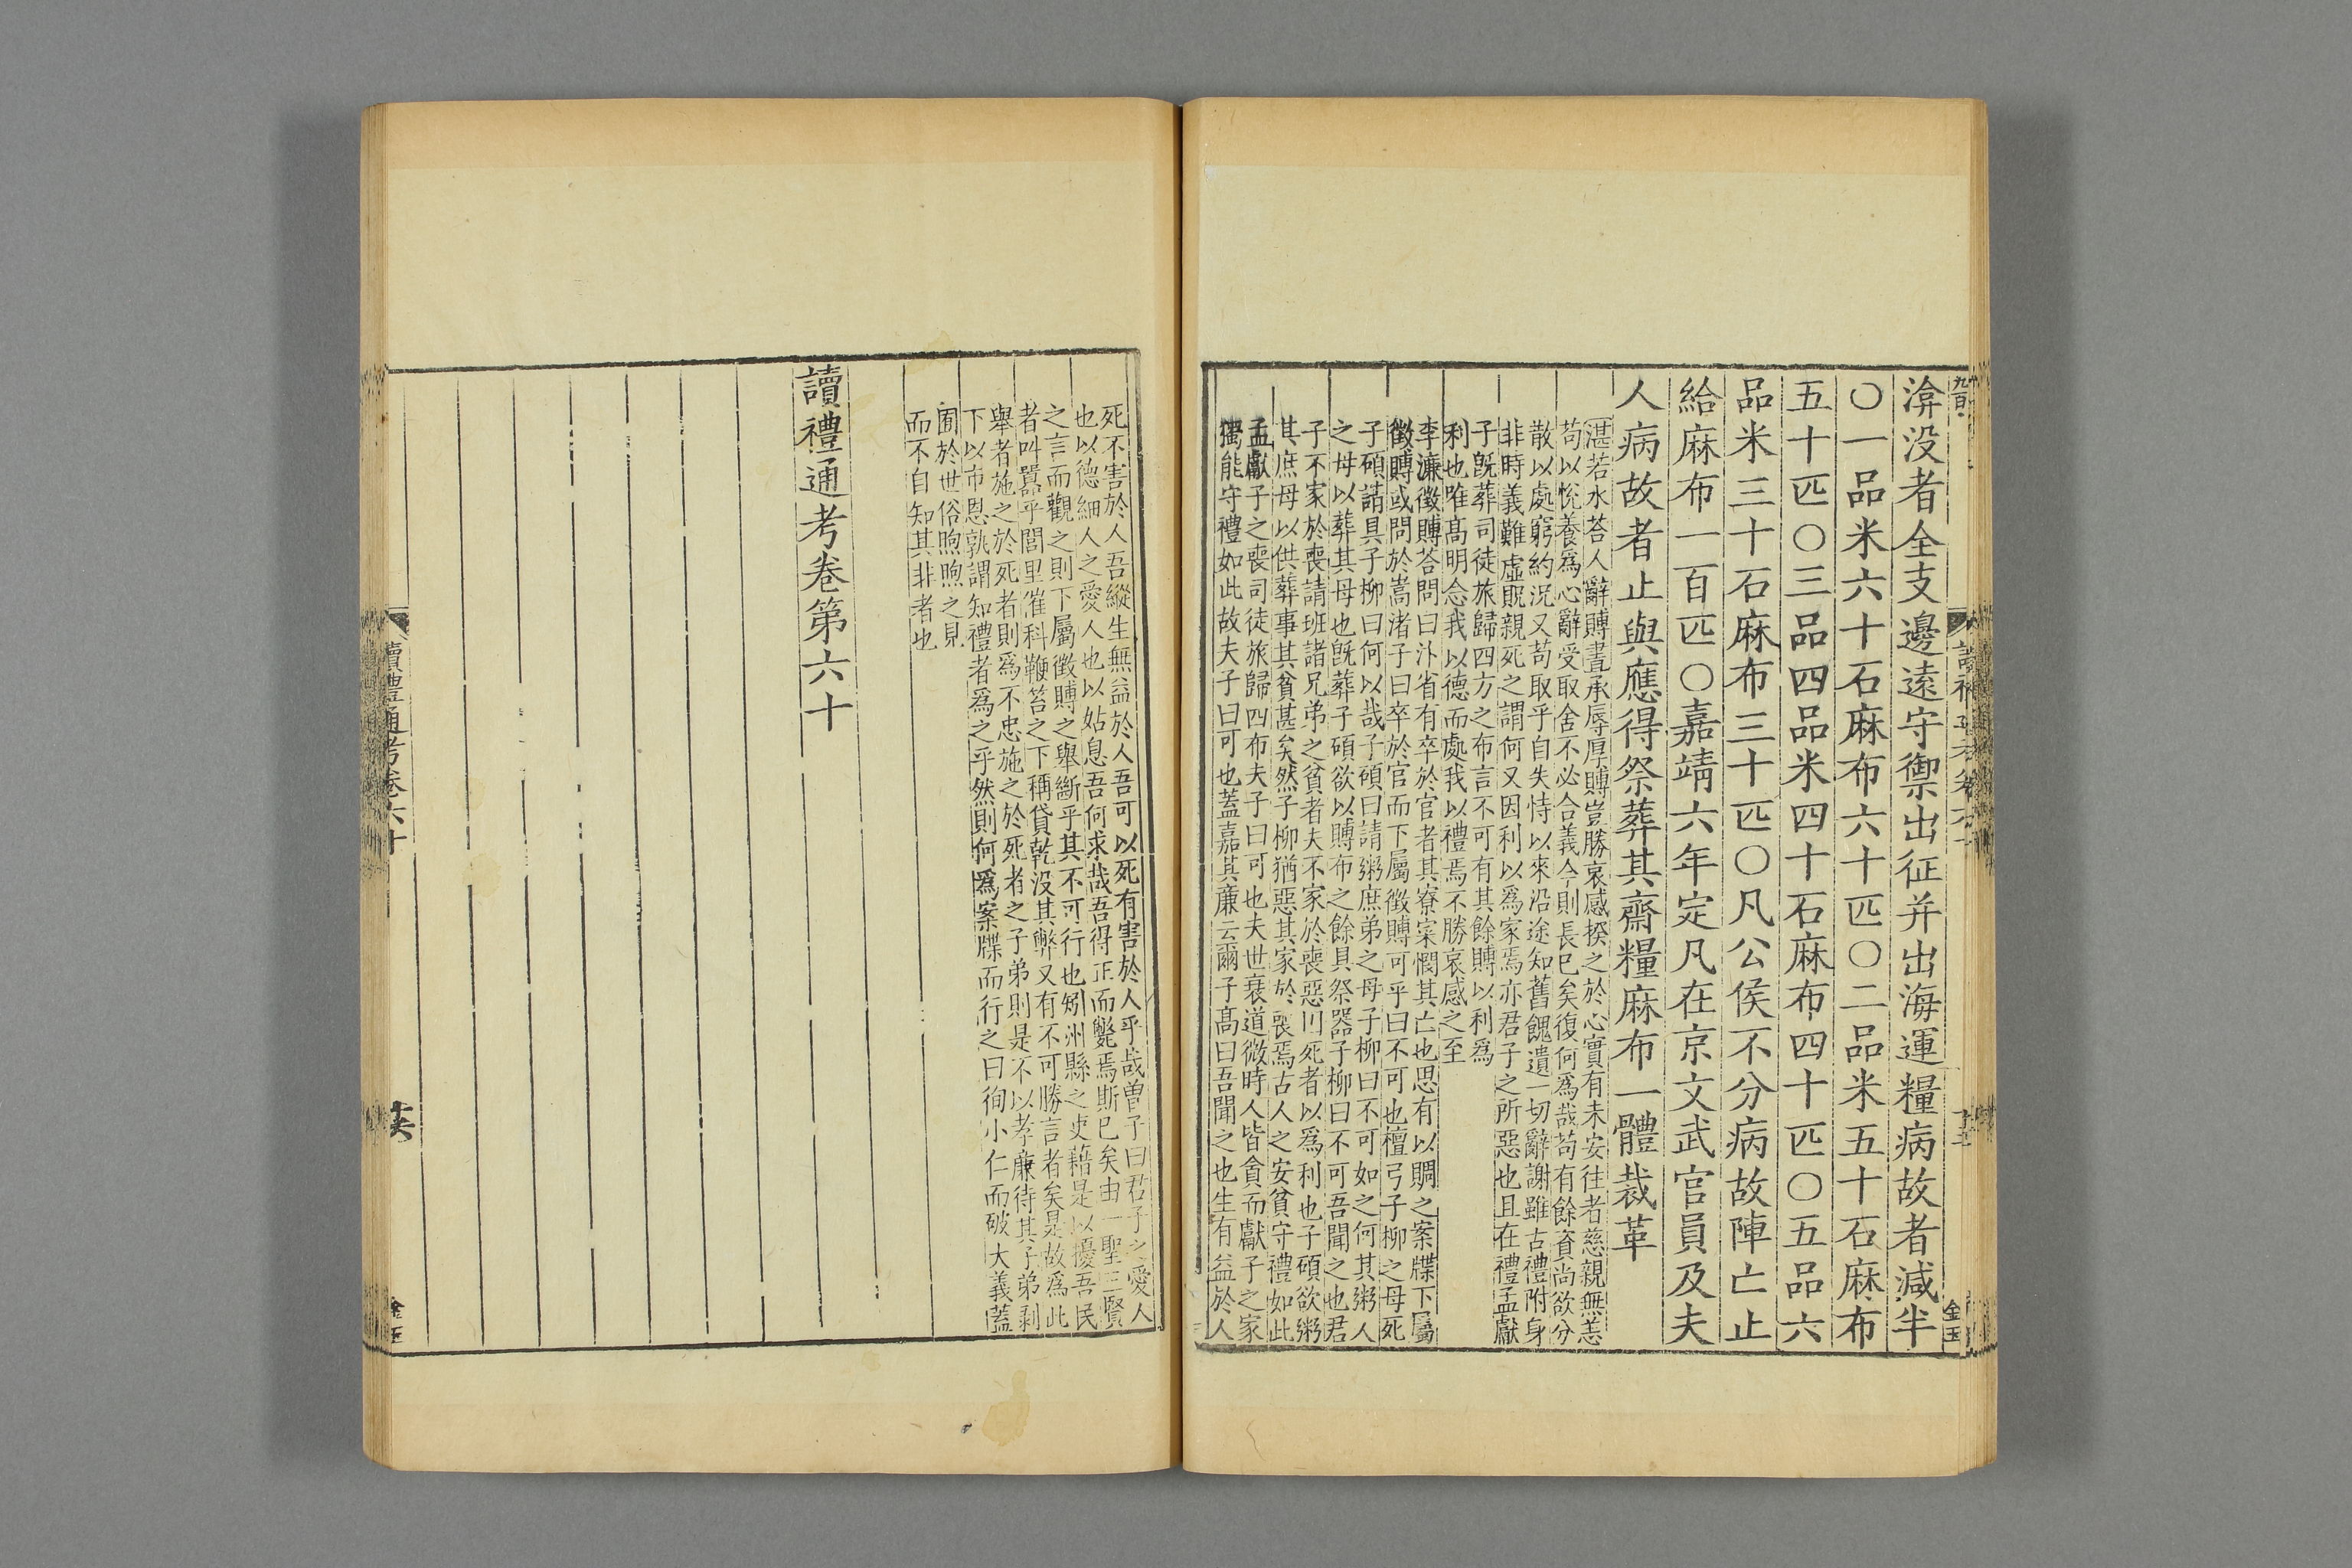 渰没者全支邊遠守禦出征并出海運糧病故者減半
〇一品米六十石麻布六十匹〇二品米五十石麻布
五十匹〇三品四品米四十石麻布四十匹〇五品六
品米三十石麻布三十匹〇凡公侯不分病故陣亡止
給麻布一百匹〇嘉靖六年定凡在京文武官員及夫
人病故者止與應得祭葬其齋糧麻布一體裁革
湛若水荅人辭賻晝承辱厚賻豈勝哀感揆之於心實有未安往者慈親無恙
苟以悅養爲心辭受取舍不必合義今則長已矣復何爲哉苟有餘資尚欲分
散以處窮約況又苟取乎自失恃以來沿途知舊餽遺一切辭謝雖古禮附身
非時義難虛貺親死之謂何又因利以爲家焉亦君子之所惡也且在禮孟獻
子旣葬司徒旅歸四方之布言不可有其餘賻以利爲
利也唯髙明念我以德而處我以禮焉不勝哀感之至
李濂徵賻荅問曰汴省有卒於官者其寮寀憫其亡也思有以賙之案牒下屬
徵賻或問於嵩渚子曰卒於官而下屬徵賻可乎曰不可也檀弓子柳之母死
子碩請具子柳曰何以哉子碩曰請粥庶弟之母子柳曰不可如之何其粥人
之母以葬其母也旣葬子碩欲以賻布之餘具祭器子柳曰不可吾聞之也君
子不家於喪請班諸兄弟之貧者夫不家於喪惡因死者以爲利也子碩欲粥
其庶母以供葬事其貧甚矣然子柳猶惡其家於喪焉古人之安貧守禮如此
孟獻子之喪司徒旅歸四布夫子曰可也夫世衰道微時人皆貪而獻子之家
獨能守禮如此故夫子曰可也蓋嘉其廉云爾子髙曰吾聞之也生有益於人
死不害於人吾縱生無益於人吾可以死有害於人乎哉曾子曰君子之愛人
也以德細人之愛人也以姑息吾何求哉吾得正而斃焉斯已矣由一聖三賢
之言而觀之則下屬徵賻之舉斷乎其不可行也矧州縣之吏藉是以擾吾民
者叫囂乎閭里催科鞭笞之下稱貸乾没其弊又有不可勝言者矣是故爲此
舉者施之於死者則爲不忠施之於死者之子弟則是不以孝廉待其子弟剥
下以市恩孰謂知禮者爲之乎然則何爲案牒而行之曰徇小仁而破大義蓋
囿於世俗煦煦之見
而不自知其非者也
讀禮通考卷第六十
讀禮通考卷六十
金玉